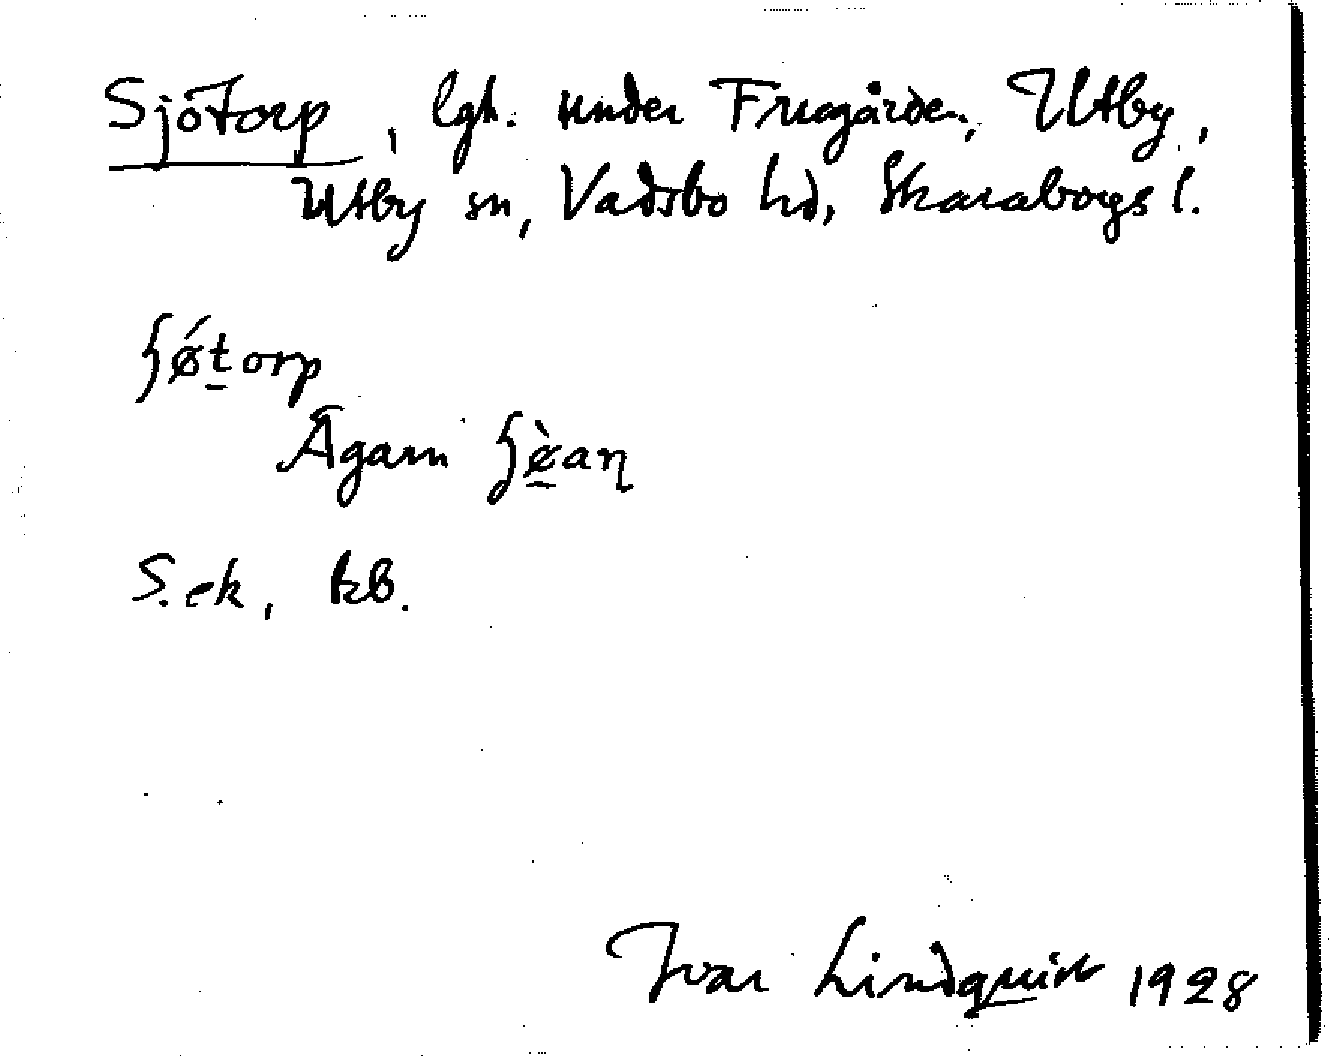 Sjötorp, lgh. under Fruگården, Utby,
Utby sn, Vadsbo hd, Skaraborgs l.
ʃǿt̠orp
Ägarn ʃø̠̀aɳ
S. ek, kb.
Ivar Lindquist 1928